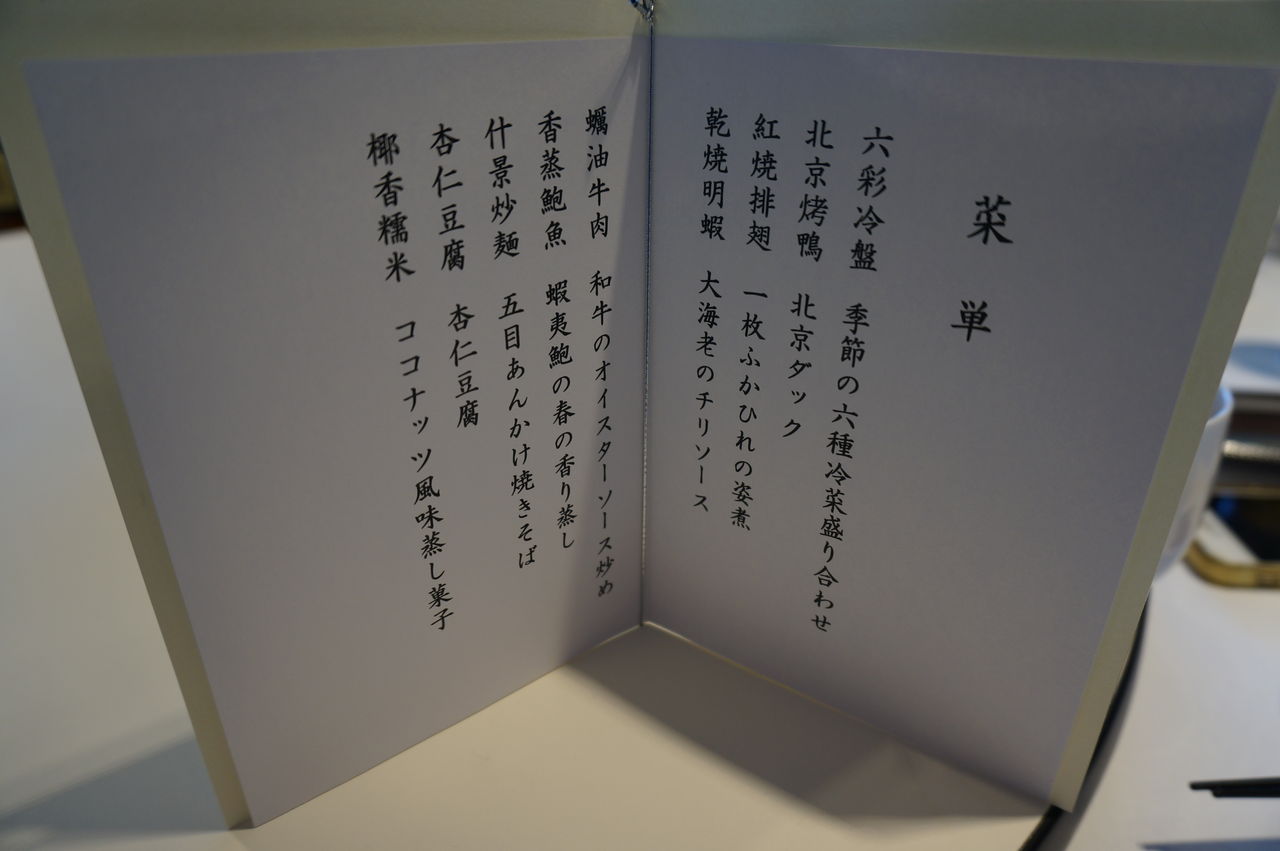 菜単
六彩冷盤 季節の六種冷菜盛り合わせ
北京烤鴨 北京ダック
紅焼排翅 一枚ふかひれの姿煮
乾焼明蝦 大海老のチリソース
蠣油牛肉 和牛のオイスターソース炒め
香蒸鮑魚 蝦夷鮑の春の香り蒸し
什景炒麺 五目あんかけ焼きそば
杏仁豆腐 杏仁豆腐
椰香糯米 ココナッツ風味蒸し菓子